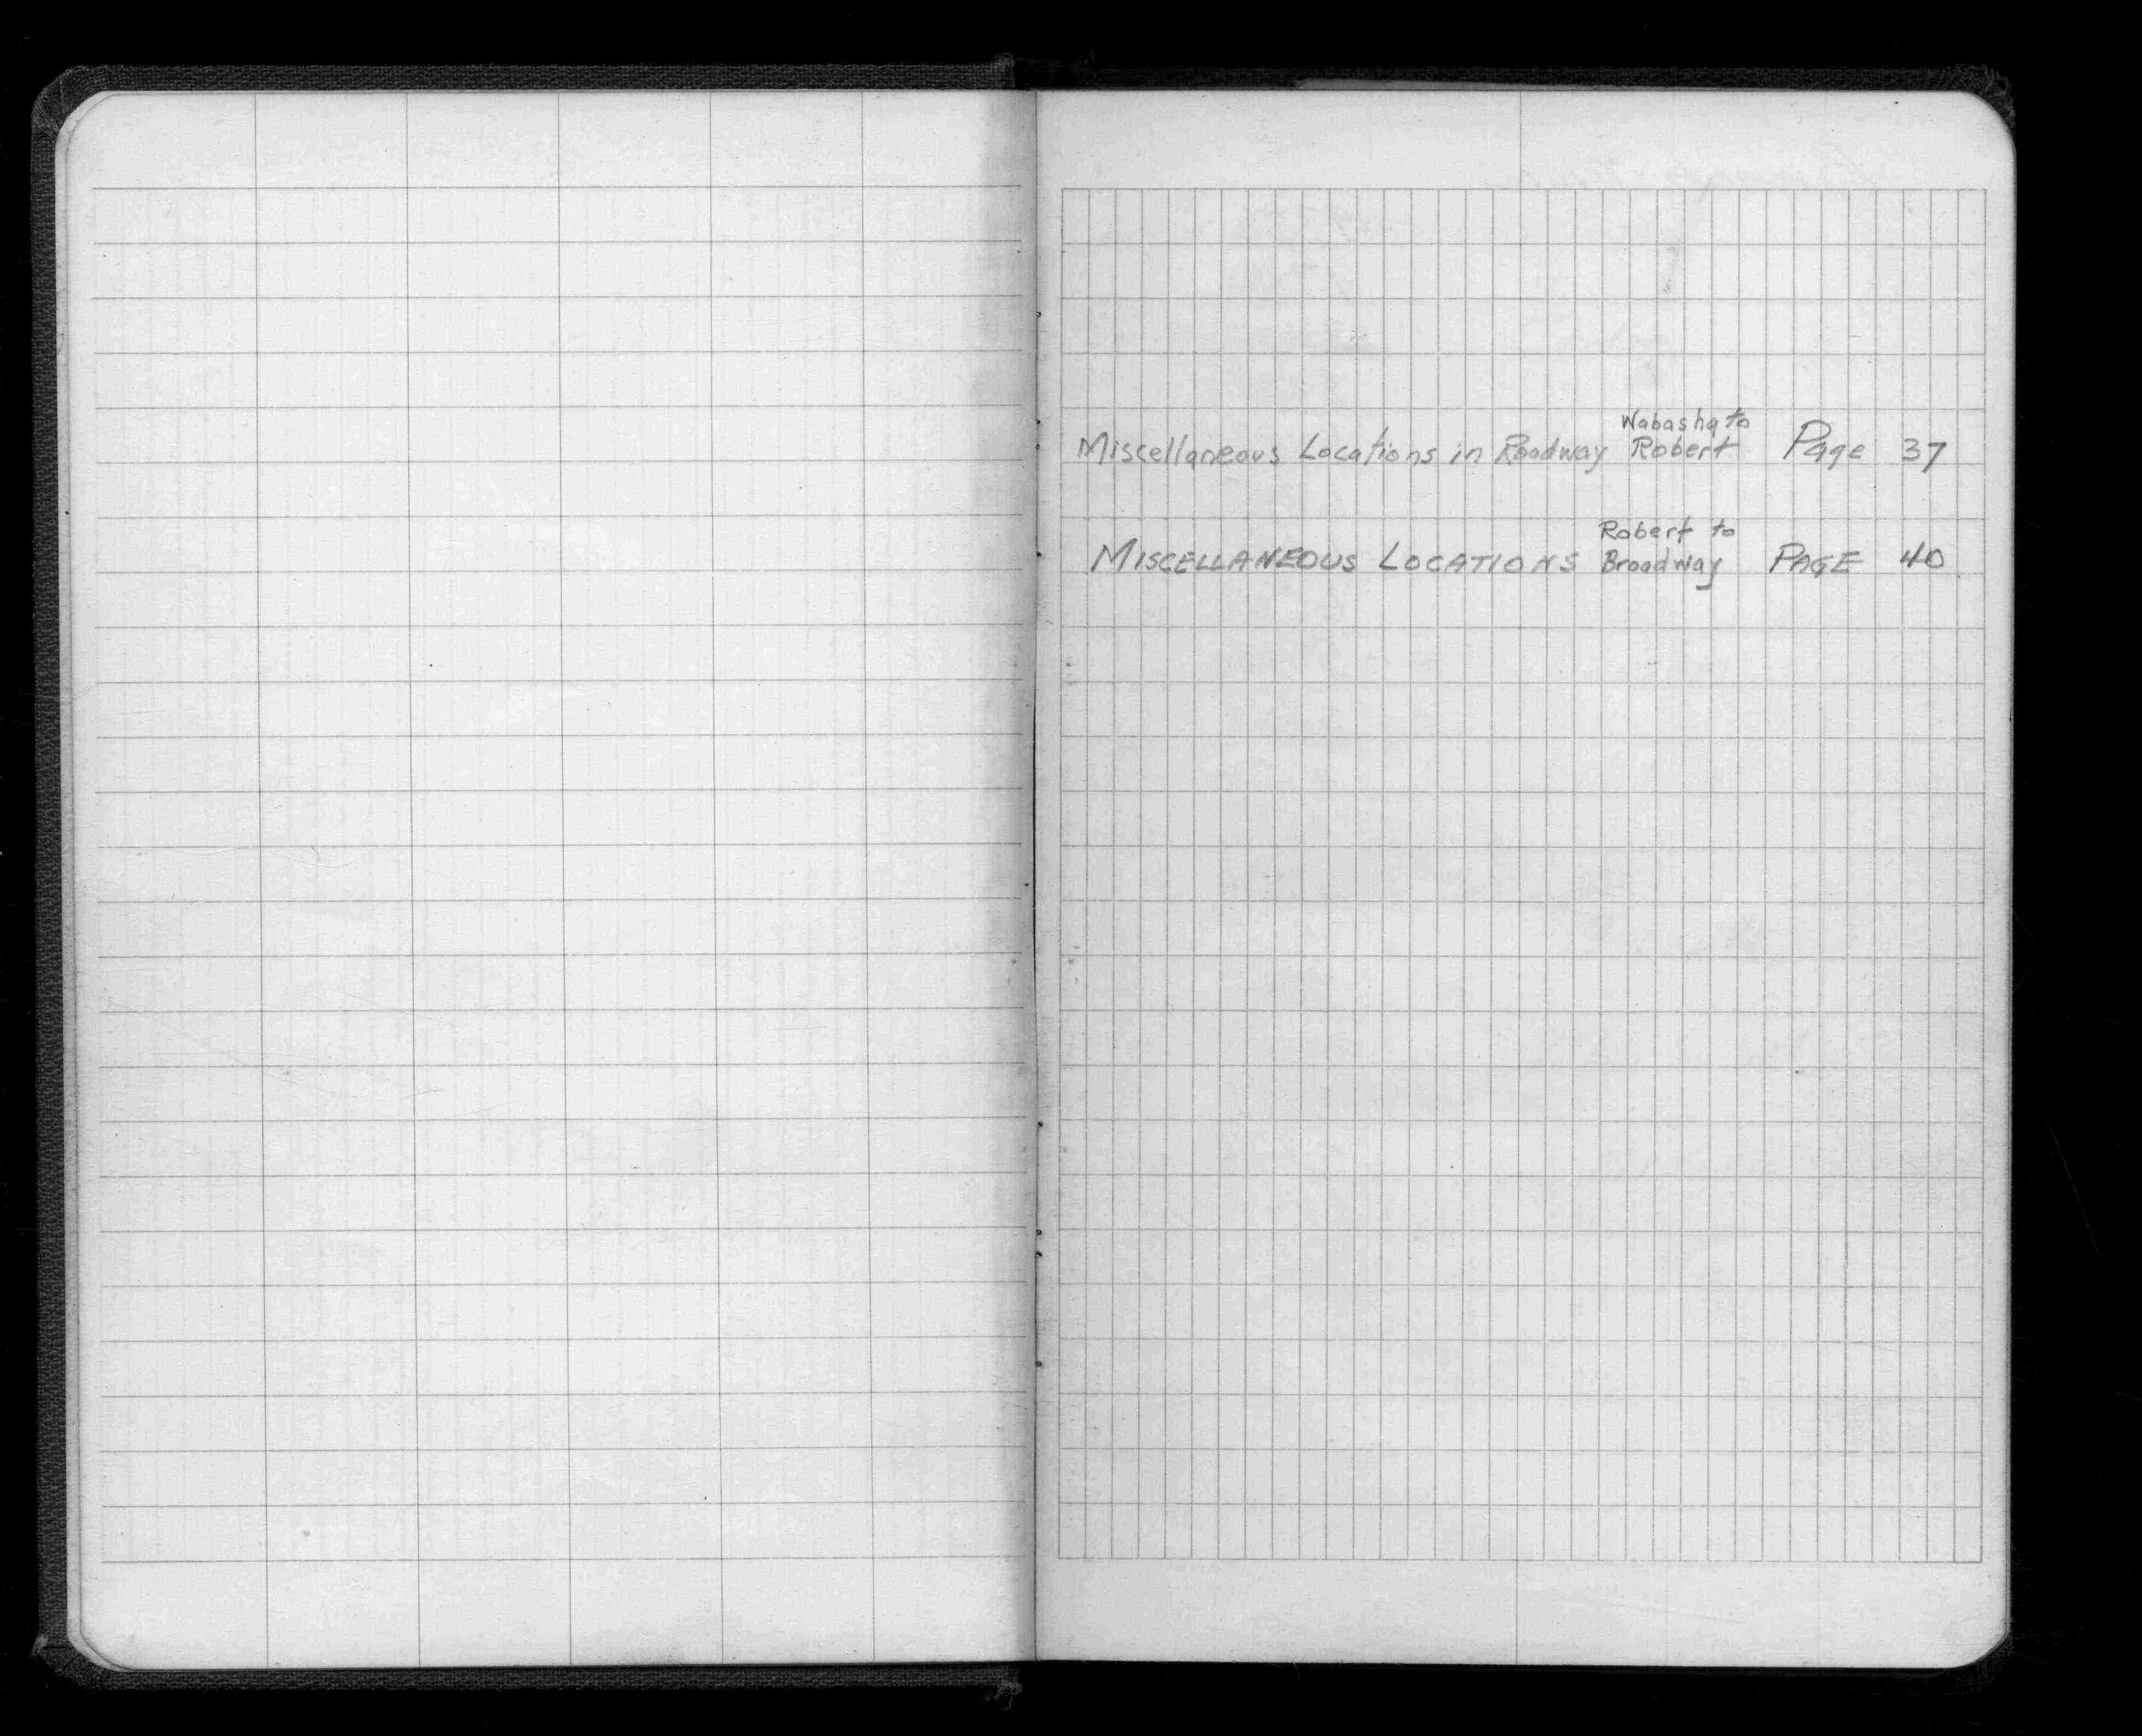 Wabasha to
Miscellaneous Locations in Roadway Robert Page 37
Robert to
MISCELLANEOUS LOCATIONS Broadway PAGE 40